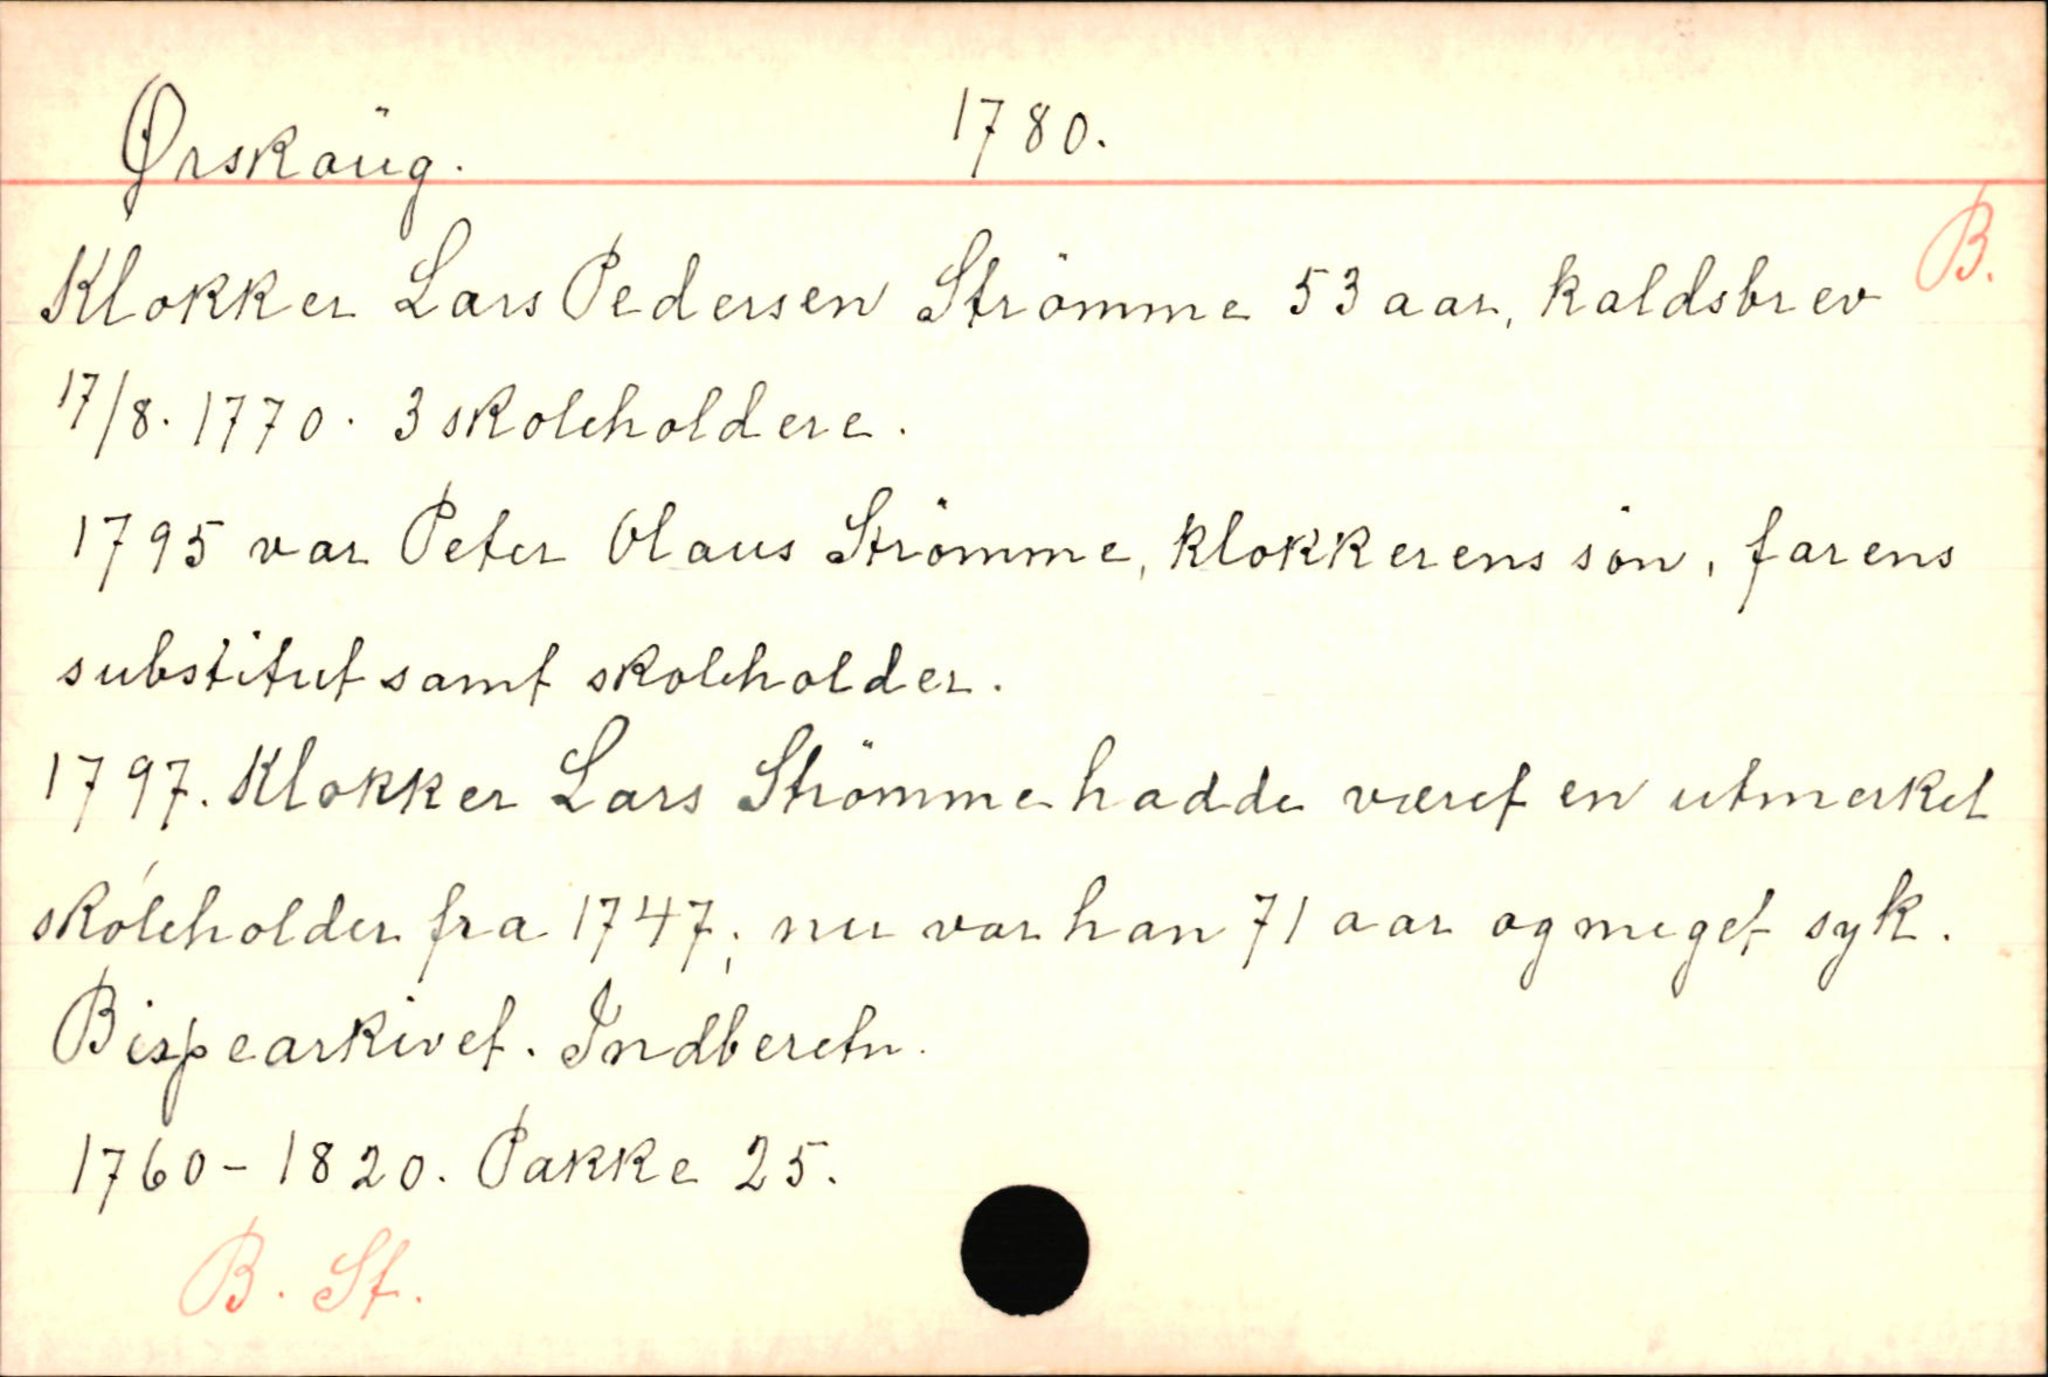 Ørskaüg. 1780.
B.
Klokker Lars Pedersen Strömme 53 aar, kaldsbrev
17/8. 1770. 3 skoleholdere.
1795 var Peter Olaus Strömme, klokkerens sön, farens
substitut samt skoleholder.
1797. Klokker Lars Strömme hadde været en utmerket
skoleholder fra 1747; nu var han 71 aar og meget syk.
Bispearkivet. Indberetn.
1760-1820. Pakke 25.
B. St.